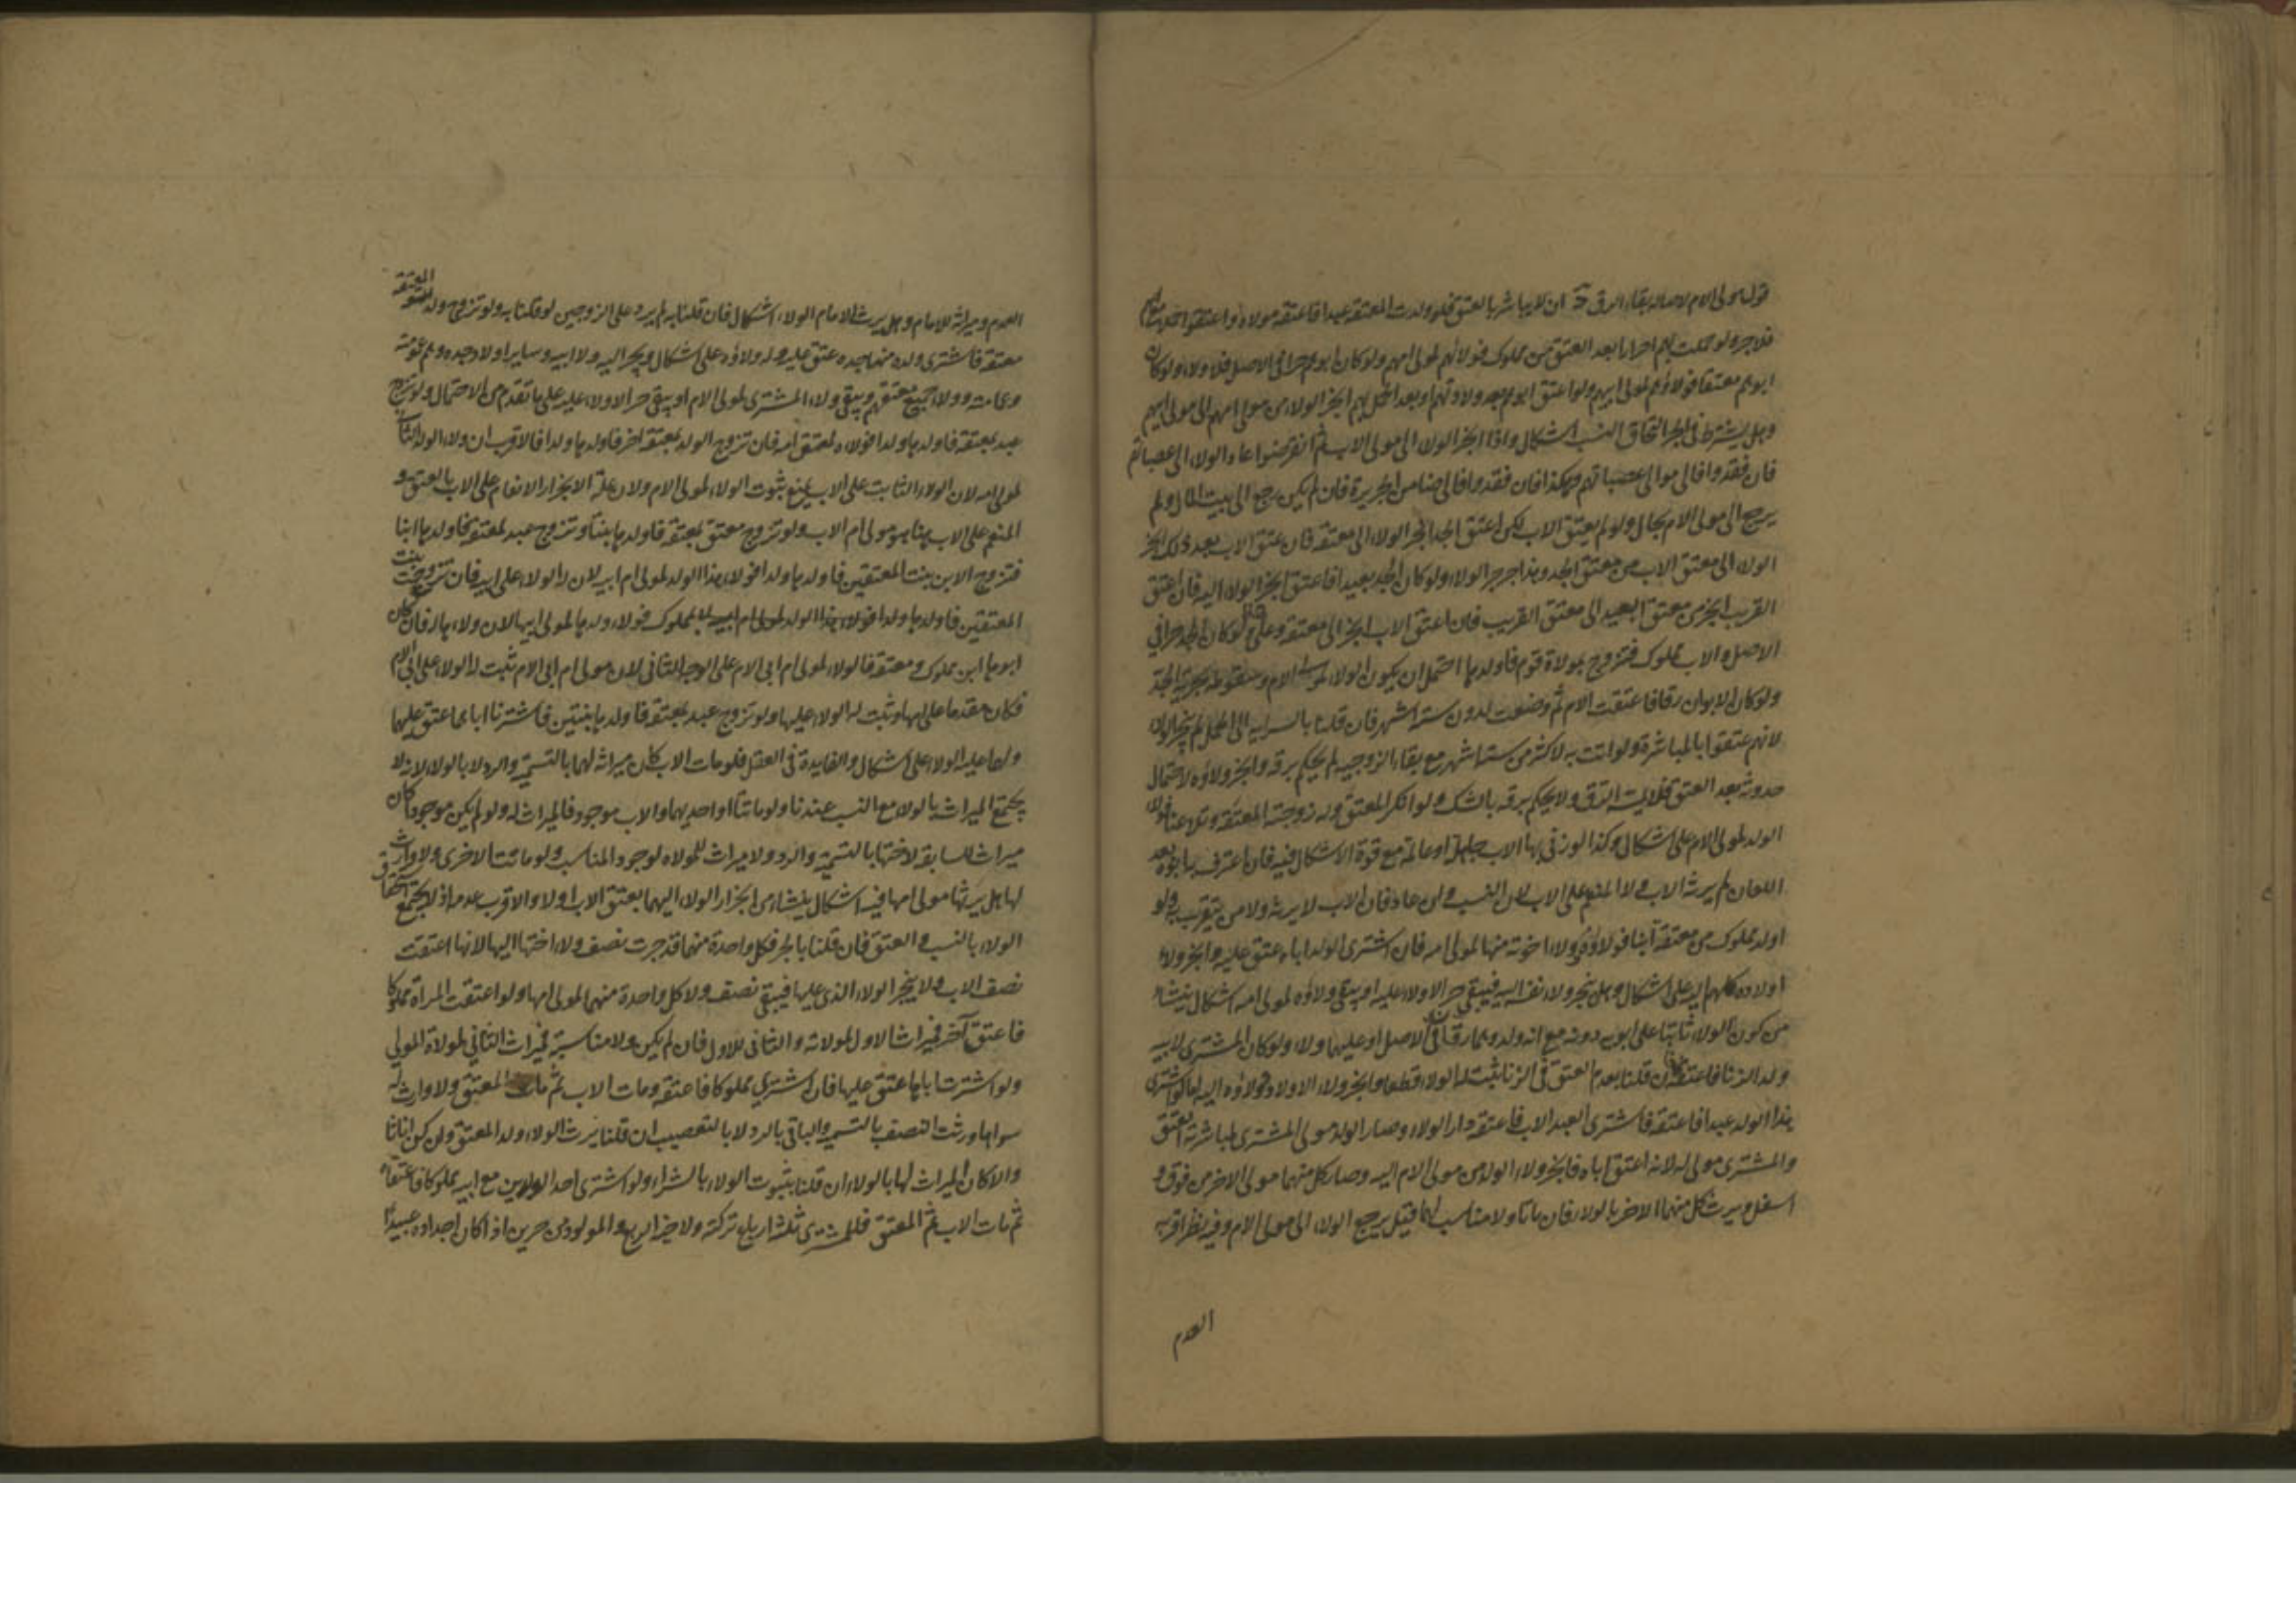 قول مولى الام لاصالة بقاء الرق ان لا يباشر بالعتق فلو ولدت المعتقة عبدا فاعتقه مولاه او اعتقوا حملا مع امهم
فلا جر ولو حملت بهم احرارا بعد العتق من مملوك فولاؤهم لمولى امهم ولو كان ابوهم حرا في الاصل فلا ولاء ولو كان
ابوهم معتقا فولاؤهم لمولى ابيهم ولو اعتق ابوهم بعد ولادتهم او بعد الحمل بهم انجر الولاء من مولى امهم الى مولى ابيهم
وهل يشترط في الجر التحاق النسب اشكال واذا انجر الولاء الى مولى الاب ثم انقرضوا عاد الولاء الى عصباتهم
فان فقدوا فالى موالى عصباتهم وهكذا فان فقدوا فالى ضامن الجريرة فان لم يكن رجع الى بيت المال ولم
يرجع الى مولى الام بحال ولو لم يعتق الاب لكن اعتق الجد انجر الولاء الى معتقه فان عتق الاب بعد ذلك انجر
الولاء الى معتق الاب من معتق الجد وهذا جر جر الولاء ولو كان الجد بعيدا فاعتق انجر الولاء اليه فان اعتق
القريب انجر من معتق البعيد الى معتق القريب فان اعتق الاب انجر الى معتقه وعلى لو كان الجد حرا في
الاصل والاب مملوك فتزوج بمولاة قوم فاولدها احتمل ان يكون الولاء لمولى الام وسقوطه بحرية الجد
ولو كان الابوان رقا فاعتقت الام ثم وضعت لدون ستة اشهر فان قلنا بالسراية الى الحمل لم ينجر الولاء
لانهم عتقوا بالمباشرة ولو اتت به لاكثر من ستة اشهر مع بقاء الزوجية لم يحكم برقه وانجر ولاؤه لاحتمال
حدوثه بعد العتق فلا يمسه الرق ولا يحكم برقه بالشك ولو انكر المعتق ولد زوجته المعتقة وتلاعنا فولاء
الولد لمولى الام على اشكال وكذا لو زنى بها الاب جاهلة او عالمة مع قوة الاشكال فيه فان اعترف به ابوه بعد
اللعان لم يرثه الاب ولا المنعم على الاب لان النسب وان عاد فان الاب لا يرثه ولا من يتقرب به ولو
اولد مملوك من معتقة ابنا فولاؤه وولاء اخوته منها لمولى امه فان اشترى الولد اباه عتق عليه وانجر ولاء
اولاده كلهم اليه على اشكال وهل ينجر ولاء نفسه اليه فيبقى حرا لا ولاء عليه او يبقى ولاؤه لمولى امه اشكال ينشأ
من كون الولاء ثابتا على ابويه دونه مع انه ولد وهما رقان في الاصل او عليهما ولاء ولو كان المشترى لابيه
ولد الزنا فاعتقه فان قلنا بعدم العتق في الزنا ثبت له الولاء قطعا وانجر ولاء الاولاد وولاؤه اليه اما لو اشترى
هذا الولد عبدا فاعتقه فاشترى العبد الاب فاعتقه دار الولاء وصار الولد مولى المشترى لمباشرته العتق
والمشترى مولى له لانه اعتق اباه فانجر ولاء الولد من مولى الام اليه وصار كل منهما مولى الاخر من فوق و
اسفل ويرث كل منهما الاخر بالولاء فان ماتا ولا مناسب لهما قيل يرجع الولاء الى مولى الام وفيه نظر اقربه
العدم
العدم وميراثه للامام وهل يرث الامام الولاء اشكال فان قلنا به لم يرد على الزوجين لو قلنا به ولو تزوج ولد المعتقة
معتقة فاشترى ولده منها جده عتق عليه وله ولاؤه على اشكال وينجر اليه ولاء ابيه وساير اولاد جده وهم عمومته
وعماته وولاء جميع معتقهم ويبقى ولاء المشترى لمولى الام او يبقى حرا لا ولاء عليه على ما تقدم من الاحتمال ولو تزوج
عبد بمعتقة فاولدها ولدا فولاؤه لمعتق امه فان تزوج الولد بمعتقة اخر فاولدها ولدا فالاقرب ان ولاء الولد الثاني
لمولى امه لان الولاء الثابت على الاب يمنع ثبوت الولاء لمولى الام ولان علة الانجرار الانعام على الاب بالعتق و
المنعم على الاب هنا هو مولى ام الاب ولو تزوج معتق بمعتقة فاولدها بنتا وتزوج عبد لمعتقة فاولدها ابنا
فتزوج الابن بنت المعتقين فاولدها ولدا فولاء هذا الولد لمولى ام ابيه لان له الولاء على ابيه فان تزوجت بنت
المعتقين فاولدها ولدا بمملوك فولاء ولدها لمولى ابيها لان ولاءها له فان كان
ابوها ابن مملوك ومعتقة فالولاء لمولى ام ابي الام على الوجه الثاني لان مولى ام ابي الام ثبت له الولاء على ابي الام
فكان مقدما على امها وثبت له الولاء عليها ولو تزوج عبد بمعتقة فاولدها بنتين فاشترتا اباهما عتق عليهما
ولهما عليه الولاء على اشكال والفايدة في العقل فلو مات الاب كان ميراثه لهما بالتسمية والرد لا بالولاء لانه لا
يجتمع الميراث بالولاء مع النسب عندنا ولو ماتتا او احديهما والاب موجود فالميراث له ولو لم يكن موجودا كان
ميراث السابقة لاختها بالتسمية والرد ولا ميراث للمولاه لوجود المناسب ولو ماتت الاخرى ولا وارث
لها هل يرثها مولى امها فيه اشكال ينشاء من انجرار الولاء اليهما بعتق الاب اولا والاقرب عدمه اذ لا يجتمع استحقاق
الولاء بالنسب والعتق فان قلنا بالجر فكل واحدة منهما قد جرت نصف ولاء اختها اليها لانها اعتقت
نصف الاب ولا ينجر الولاء الذي عليها فيبقى نصف ولاء كل واحدة منهما لمولى امها ولو اعتقت المراة مملوكا
فاعتق آخر فميراث الاول لمولاته والثاني للاول فان لم يكن ولا مناسبة فميراث الثاني لمولاة المولى
ولو اشترت اباها عتق عليها فان اشترى مملوكا فاعتقه ومات الاب ثم مات المعتق ولا وارث له
سواها ورثت النصف بالتسمية والباقي بالرد لا بالتعصيب ان قلنا يرث الولاء ولد المعتق وان كن اناثا
والا كان الميراث لها بالولاء ان قلنا بثبوت الولاء بالشراء ولو اشترى احد الولدين مع ابيه مملوكا فاعتقاه
ثم مات الاب ثم المعتق فللمشترى ثلثة ارباع تركته ولاخيه الربع والمولود من حرين اذا كان اجداده عبيدا